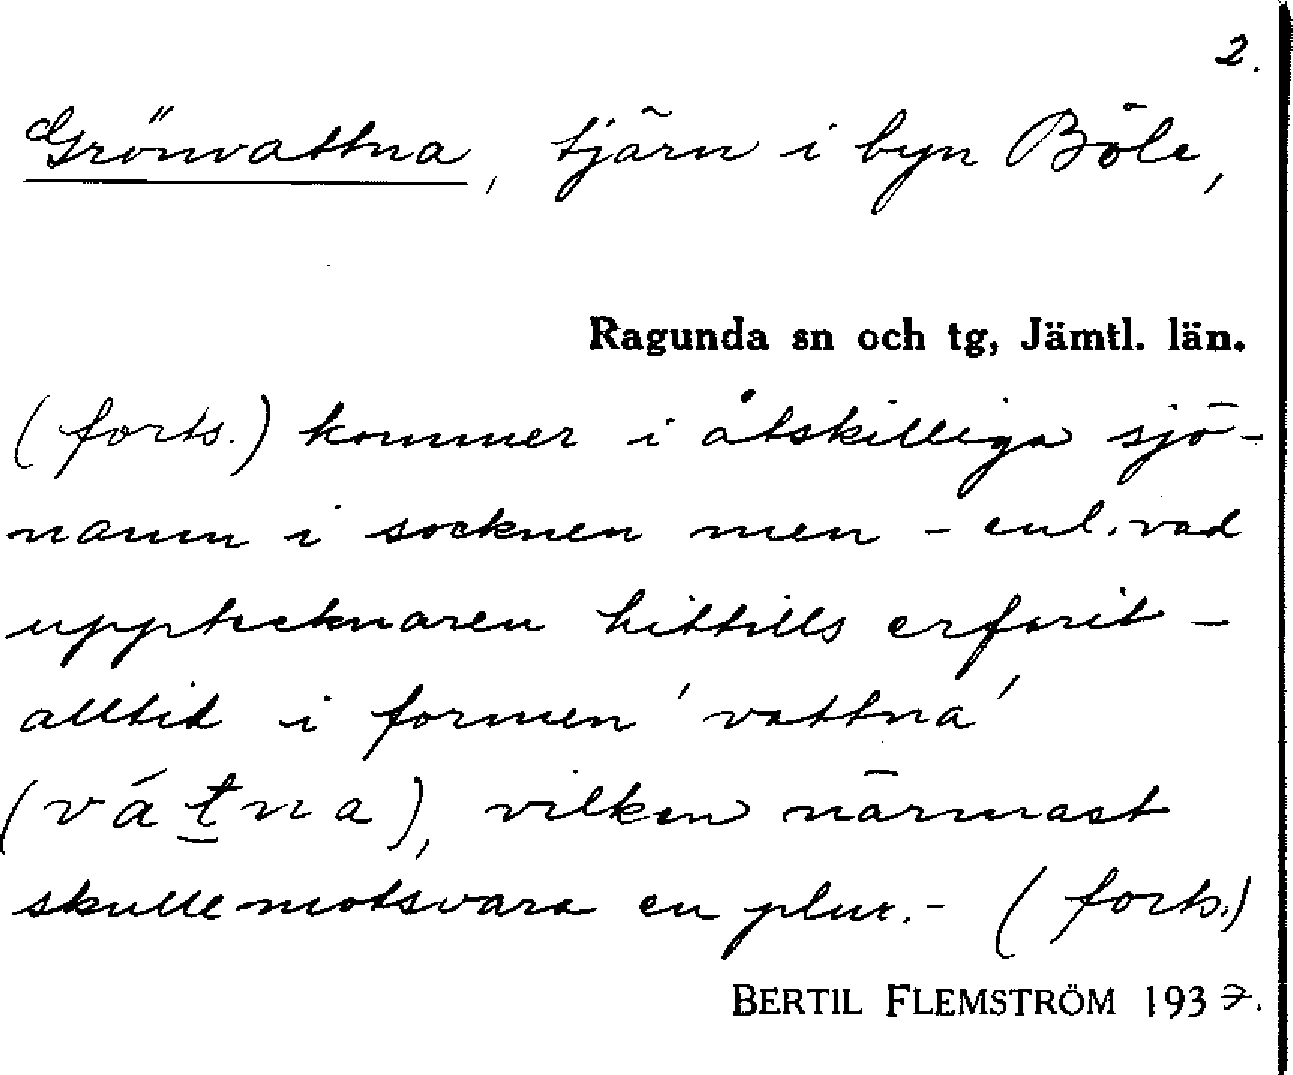 2.
Grönvattna, tjärn i byn Böle,
Ragunda sn och tg, Jämtl. län.
(forts.) kommer i åtskilliga sjö-
namn i socknen men - enl. vad
upptecknaren hittills erfarit -
alltid i formen 'vattna'
(vátna), vilken närmast
skulle motsvara en plur.- (forts.)
BERTIL FLEMSTRÖM 1937.